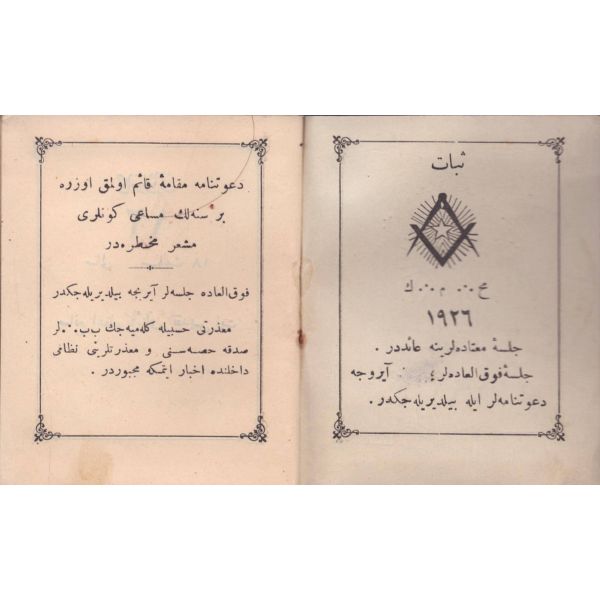 ثبات
مح ∴ م ∴ ك
١٩٢٦
جلسۀ معتاده‌لرينه عائددر .
جلسۀ فوق العاده‌لر آيروجه
دعوتنامه‌لر ايله بيلديريله‌جكدر .
دعوتنامه مقامۀ قائم اولمق اوزره
بر سنه‌لك مساعی كونلری
مشعر مخطره‌در
فوق العاده جلسه‌لر آيريجه بيلديريله‌جكدر
معذرتی حسبيله كله‌ميه‌جك ب ب ∴ لر
صدقه حصه‌سنی و معذرتلرينی نظامی
داخلنده اخبار ايتمكه مجبوردر .